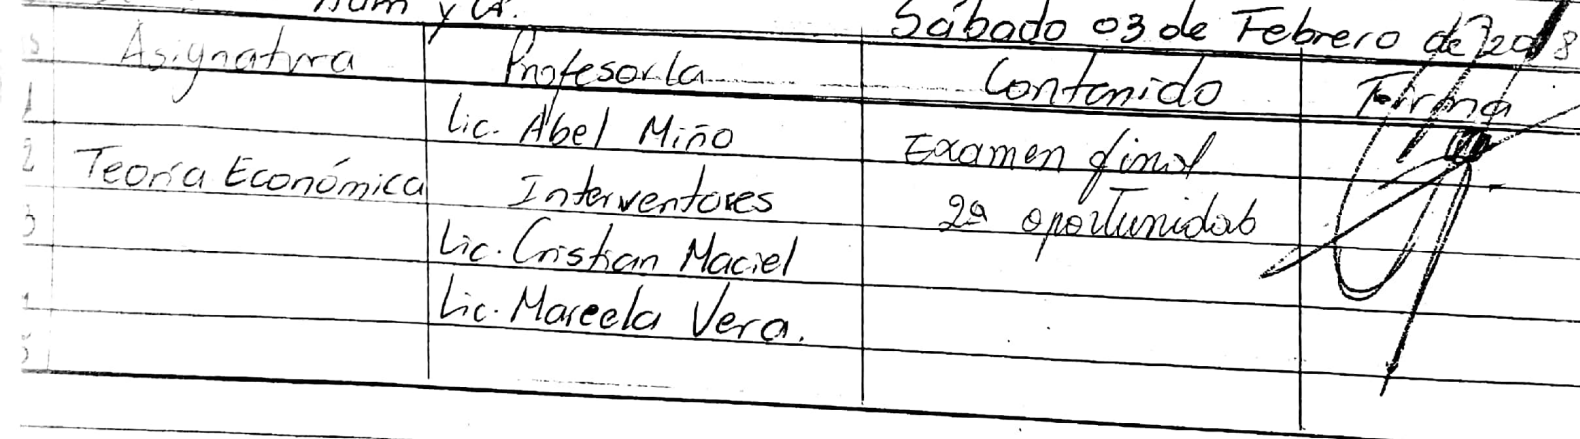 Sábado 03 de Febrero de 2018
Asignatura Profesor/a Contenido Firma
1 Lic. Abel Miño Examen final
2 Teoría Económica Interventores 2ª oportunidad
3 Lic. Cristian Maciel
Lic. Marcela Vera.
5